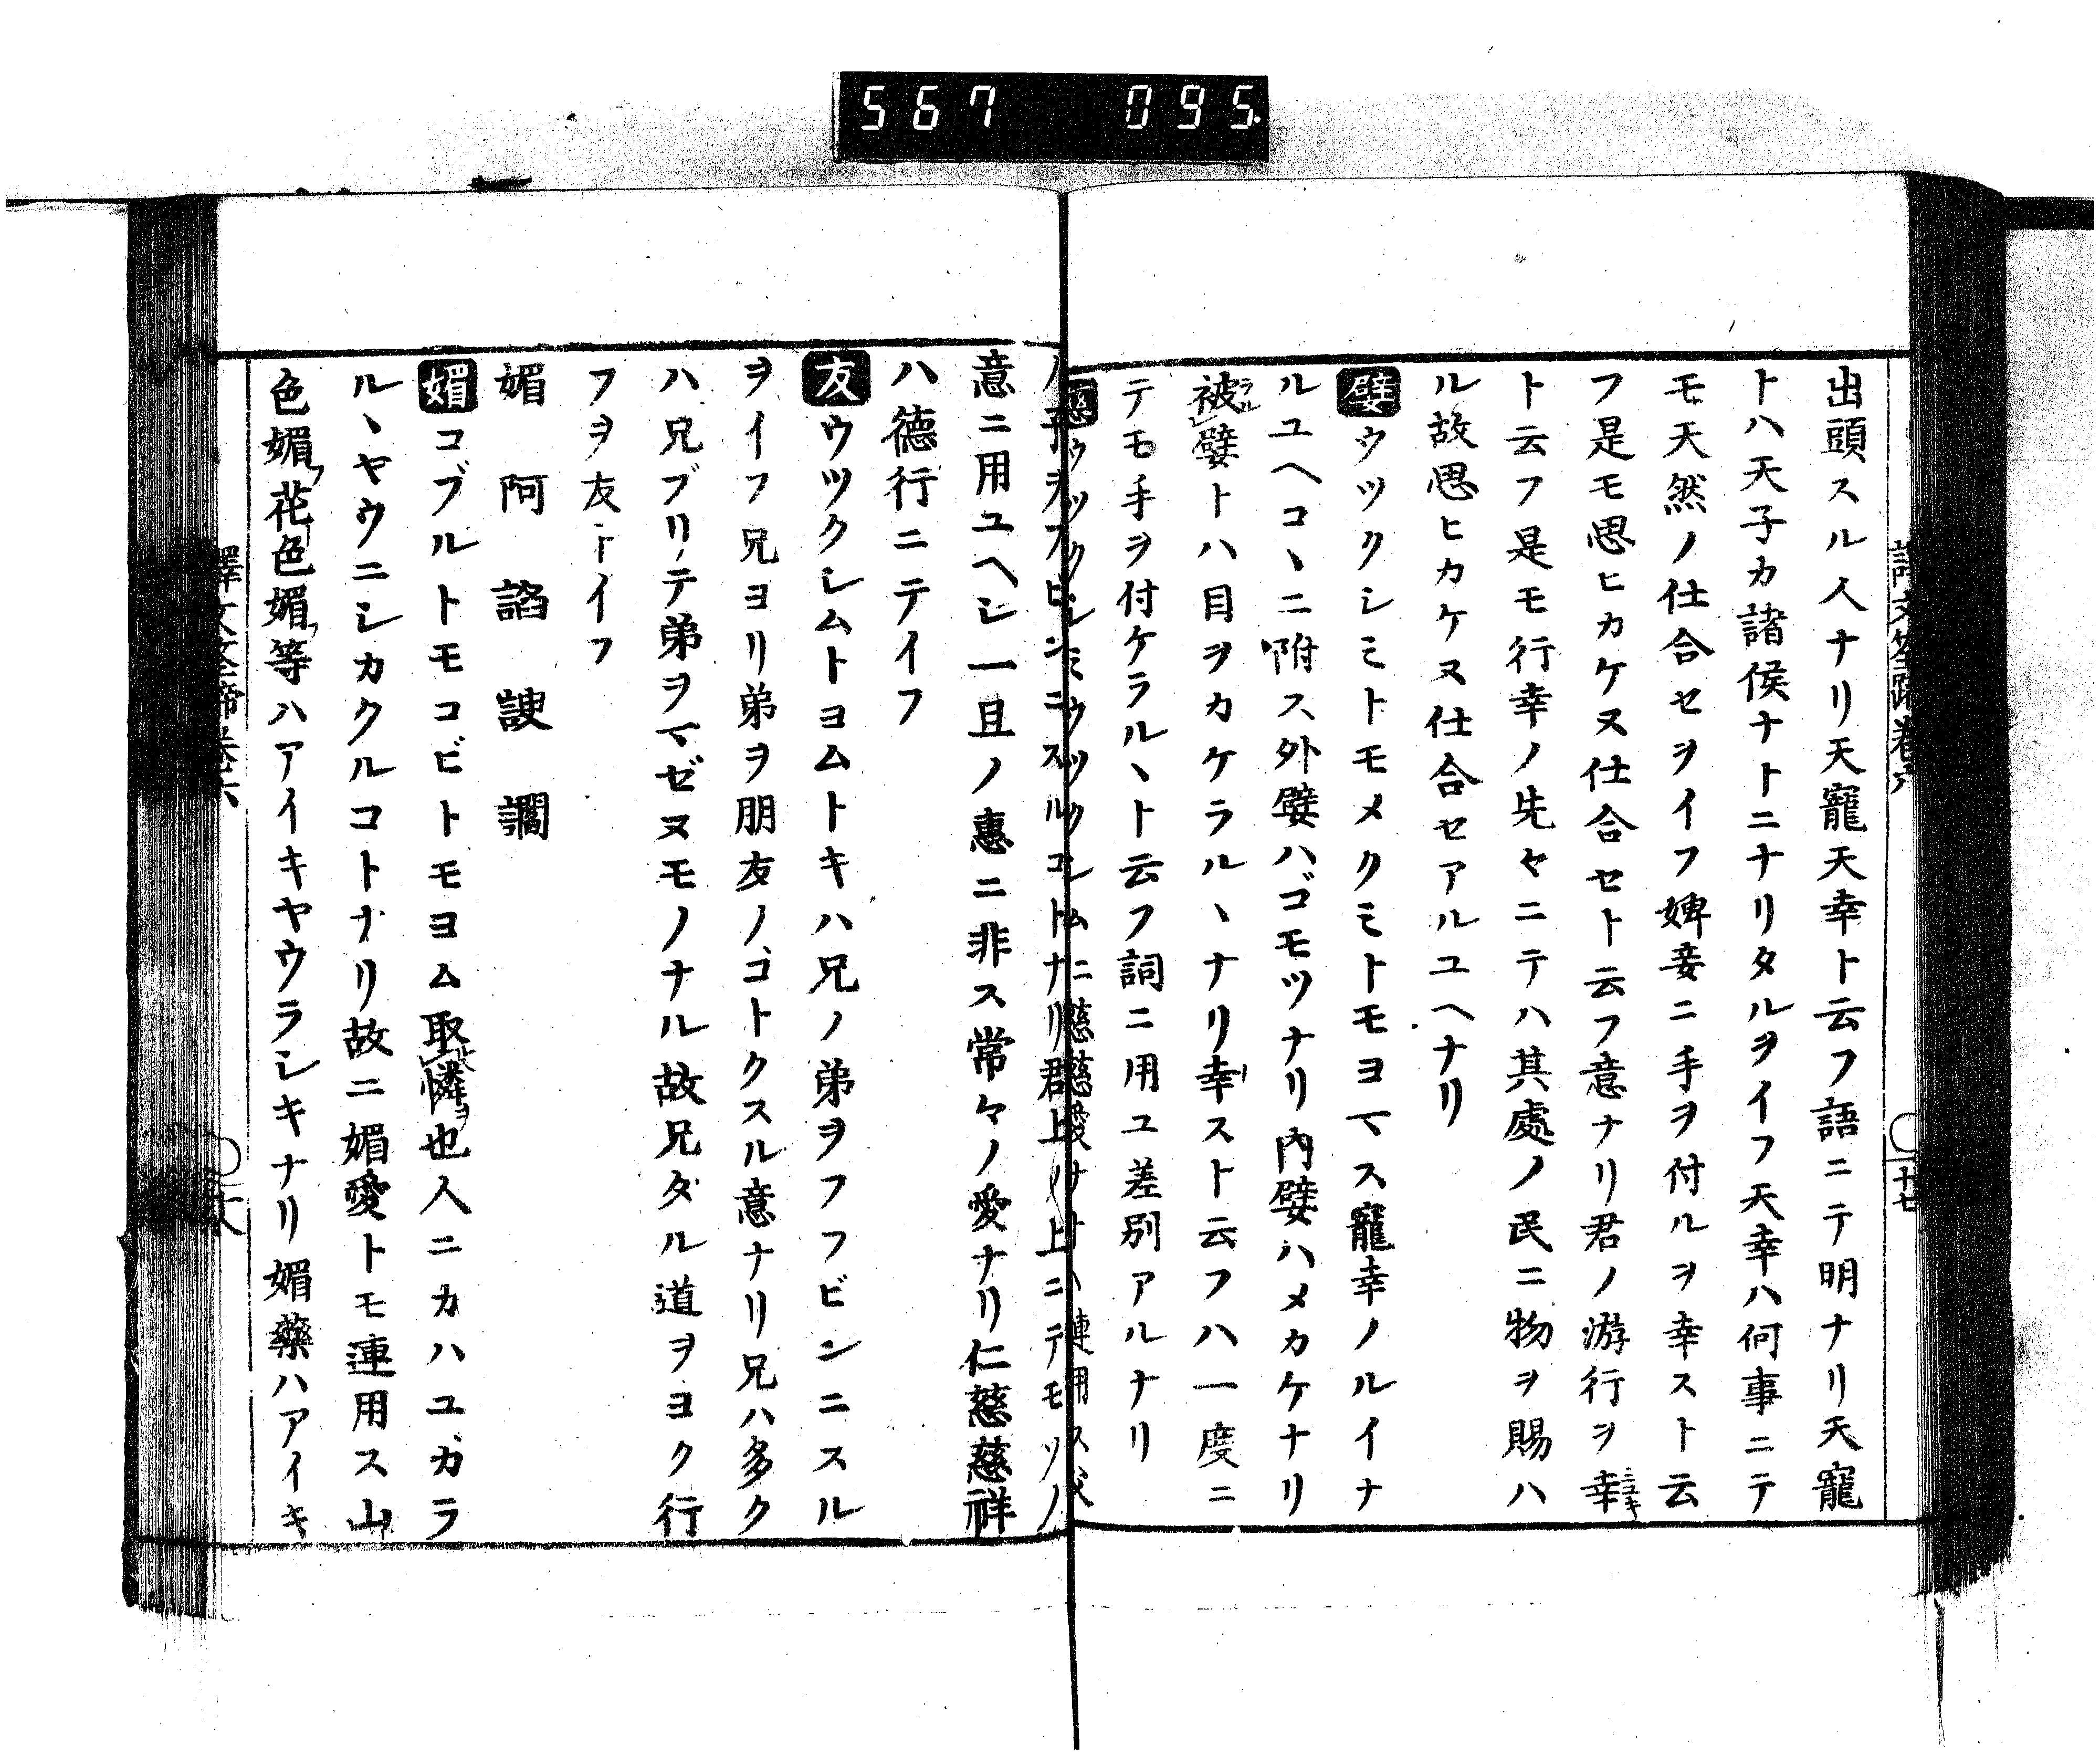 567 095.
出頭スル人ナリ天寵天幸ト云フ語ニテ明ナリ天寵
トハ天子カ諸侯ナトニナリタルヲイフ天幸ハ何事ニテ
モ天然ノ仕合セヲイフ婢妾ニ手ヲ付ルヲ幸スト云
フ是モ思ヒカケヌ仕合セト云フ意ナリ君ノ游行ヲ幸
ト云フ是モ行幸ノ先々ニテハ其處ノ民ニ物ヲ賜ハ
ル故思ヒカケヌ仕合セアルユヘナリ
嬖ウツクシミトモメクミトモヨマス寵幸ノルイナ
ルユヘコヽニ附ス外嬖ハゴモツナリ内嬖ハメカケナリ
被嬖トハ目ヲカケラルヽナリ幸スト云フハ一度ニ
テモ手ヲ付ケラルヽト云フ詞ニ用ユ差別アルナリ
慈ウツクシミウツクシムニ慈慈愛
ノ子ヲフビンニスルコトナリ君上ノ上ニテモソノ
意ニ用ユヘシ一旦ノ惠ニ非ス常々ノ愛ナリ仁慈慈祥
ハ德行ニテイフ
友ウツクシムトヨムトキハ兄ノ弟ヲフフビンニスル
ヲイフ兄ヨリ弟ヲ朋友ノコトクスル意ナリ兄ハ多ク
ハ兄ブリテ弟ヲマゼヌモノナル故兄タル道ヲヨク行
フヲ友トイフ
媚 阿 諂 諛 讇
媚コブルトモコビトモヨム取憐也人ニカハユカラ
ルヽヤウニシカクルコトナリ故ニ媚愛トモ連用ス山
色媚花色媚等ハアイキヤウラシキナリ媚藥ハアイキ